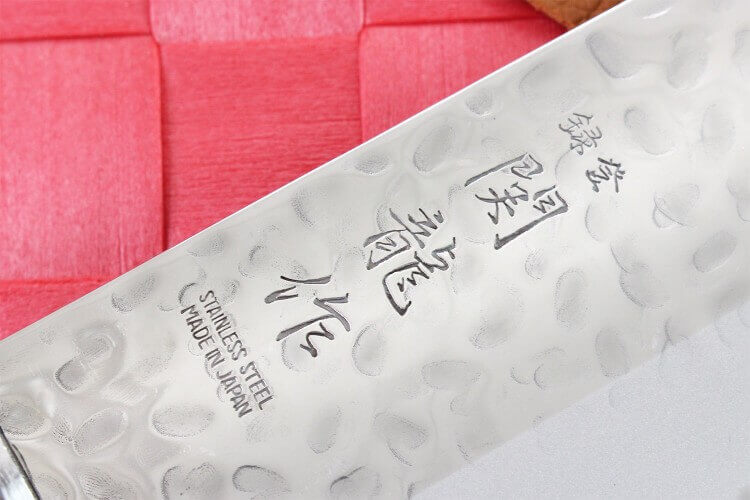 登録
関龍作
STAINLESS STEEL
MADE IN JAPAN